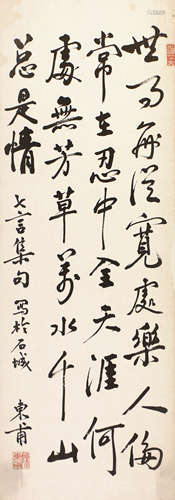 世事每從寬處樂人倫
常在忍中全天涯何
處無芳草萬水千山
總是情
七言集句 寫於石城
東甫